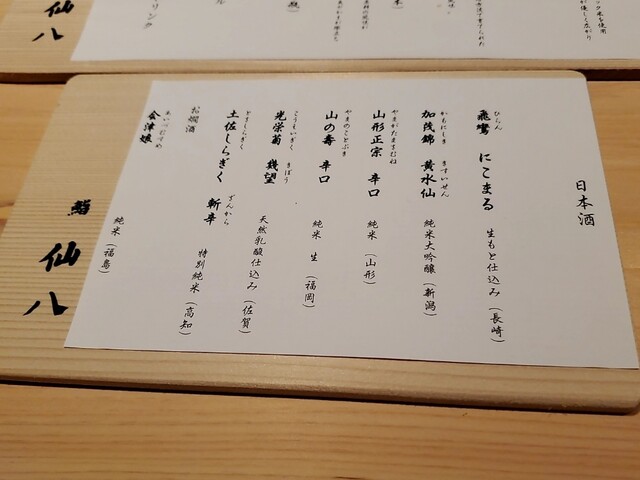 日本酒
ひらん
飛鸞 にこまる 生もと仕込み（長崎）
かもにしき きすいせん
加茂錦 黄水仙 純米大吟醸（新潟）
やまがたまさむね
山形正宗 辛口 純米（山形）
やまのことぶき
山の壽 辛口 純米 生（福岡）
こうえいぎく きぼう
光栄菊 幾望 天然乳酸仕込み（佐賀）
とさしらぎく ざんから
土佐しらぎく 斬辛 特別純米（高知）
お燗酒
あいづむすめ
会津娘 純米（福島）
鮨 仙八
仙八
リンク